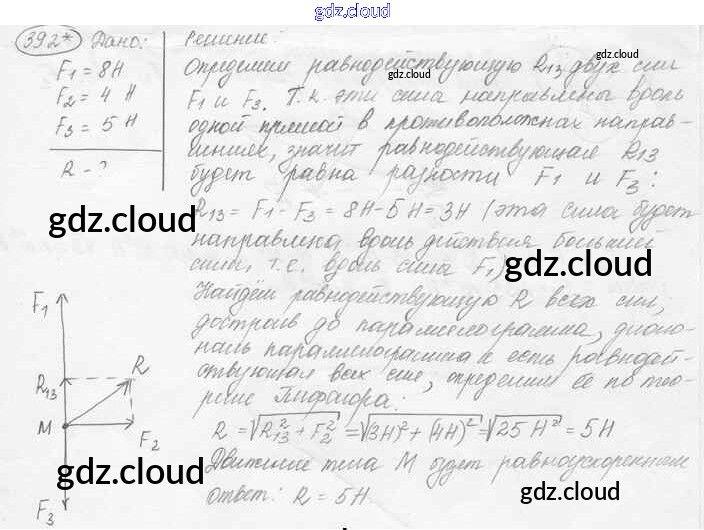 gdz.cloud
392* Дано: Решение:
F₁ = 8Н
F₂ = 4 Н
F₃ = 5 Н
R - ?
gdz.cloud
Определим равнодействующую R₁₃ двух сил
F₁ и F₃. Т.к. эти сила направлены вдоль
одной прямой в противоположных направ-
лениях, значит равнодействующая R₁₃
будет равна разности F₁ и F₃:
R₁₃ = F₁ - F₃ = 8Н - 5Н = 3Н (эта сила будет
направлена вдоль действия большей
силы, т.е. вдоль сила F₁)
Найдём равнодействующую R всех сил,
достроив до параллелограмма, диаго-
наль параллелограмма и есть равнодей-
ствующая всех сил, определим её по тео-
реме Пифагора:
R = √R₁₃² + F₂² = √(3Н)² + (4Н)² = √25 Н² = 5Н
Движение тела М будет равноускоренным
ответ: R = 5Н
gdz.cloud
gdz.cloud
gdz.cloud
gdz.cloud
gdz.cloud
gdz.cloud
F₁
R₁₃
R
M
F₂
F₃